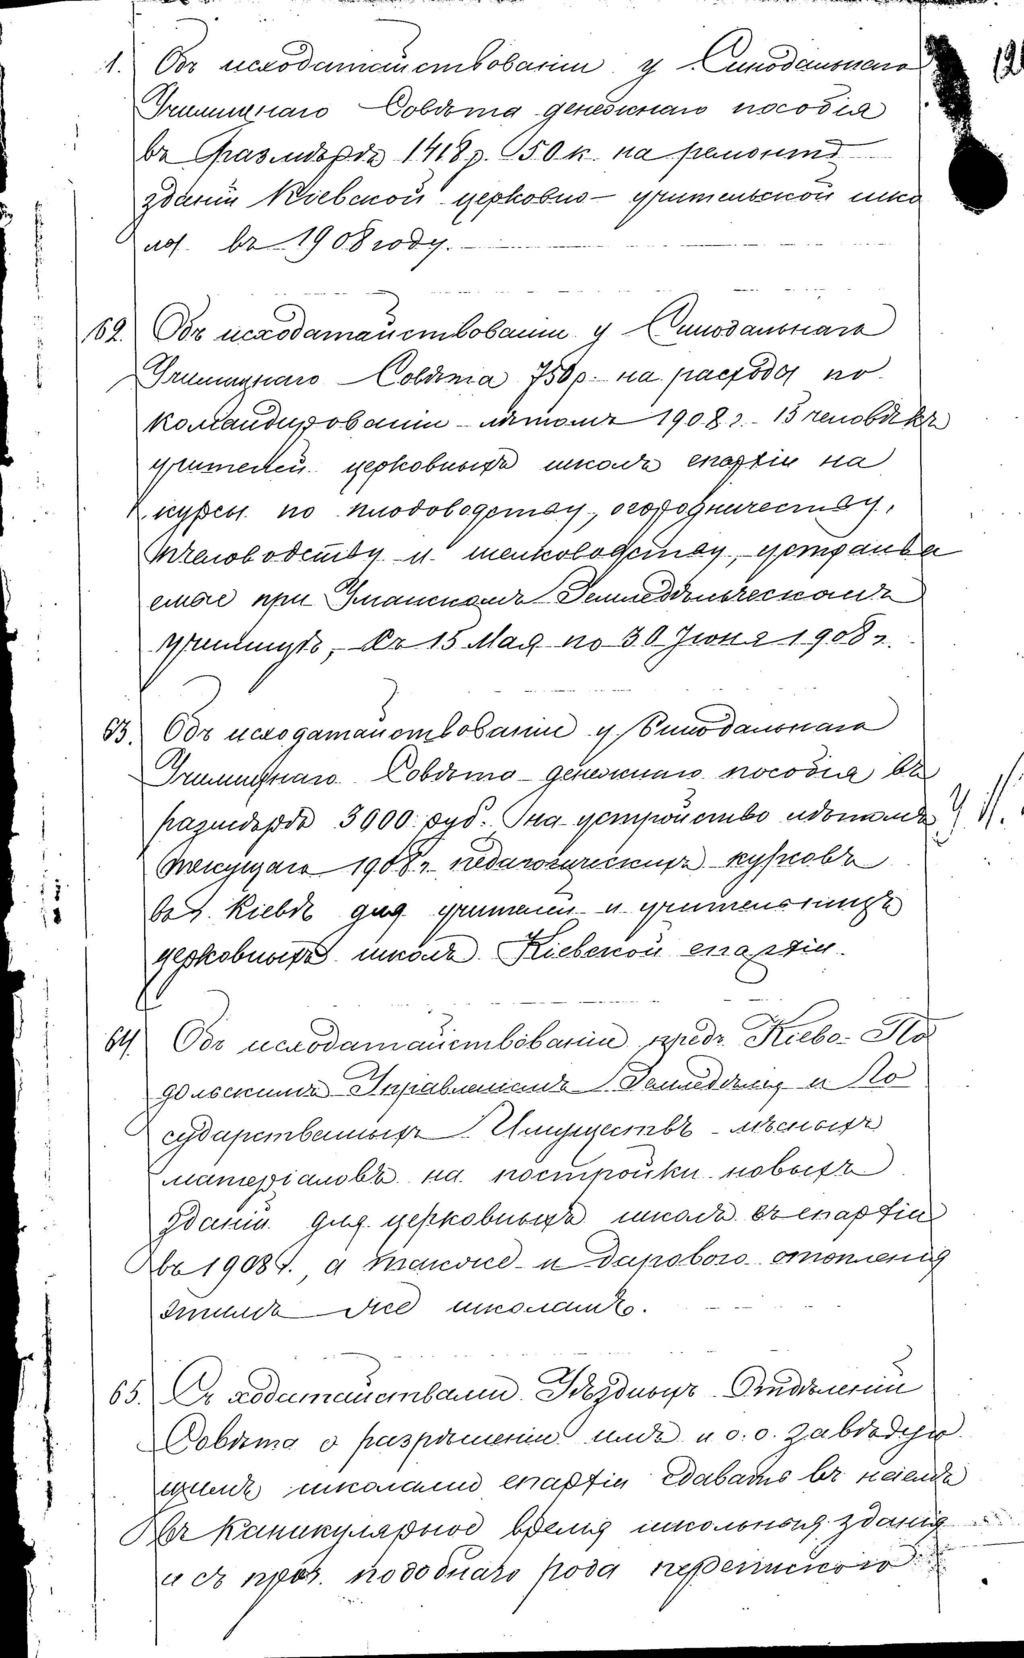 1. Объ исходатайствованіи у Синодальнаго
Училищнаго Совѣта денежнаго пособія
въ размѣрѣ 1418 р. 50 к. на ремонтъ
зданій Кіевской церковно-учительской шко
лы въ 1908 году.
62. Объ исходатайствованіи у Синодальнаго
Училищнаго Совѣта 750 р. на расходы по
командированію лѣтомъ 1908 г. 15 человѣкъ
учителей церковныхъ школъ епархіи на
курсы по плодоводству, огородничеству,
пчеловодству и шелководству, устраива
емые при Уманскомъ Земледѣльческомъ
училищѣ, съ 15 Мая по 30 Іюня 1908 г.
63. Объ исходатайствованіи у Синодальнаго
Училищнаго Совѣта денежнаго пособія въ
размѣрѣ 3000 руб. на устройство лѣтомъ
текущаго 1908 г. педагогическихъ курсовъ
въ г. Кіевѣ для учителей и учительницъ
церковныхъ школъ Кіевской епархіи.
64. Объ исходатайствованіи предъ Кіево-По
дольскимъ Управленіемъ Земледѣлія и Го
сударственныхъ Имуществъ лѣсныхъ
матеріаловъ на постройки новыхъ
зданій для церковныхъ школъ епархіи
въ 1908 г., а также и дарового отопленія
этимъ же школамъ.
65. Съ ходатайствами Уѣздныхъ Отдѣленій
Совѣта о разрѣшеніи имъ и о.о. завѣдую
щимъ школами епархіи сдавать въ наемъ
въ каникулярное время школьныя зданія
и съ проч. подобнаго рода перепиского